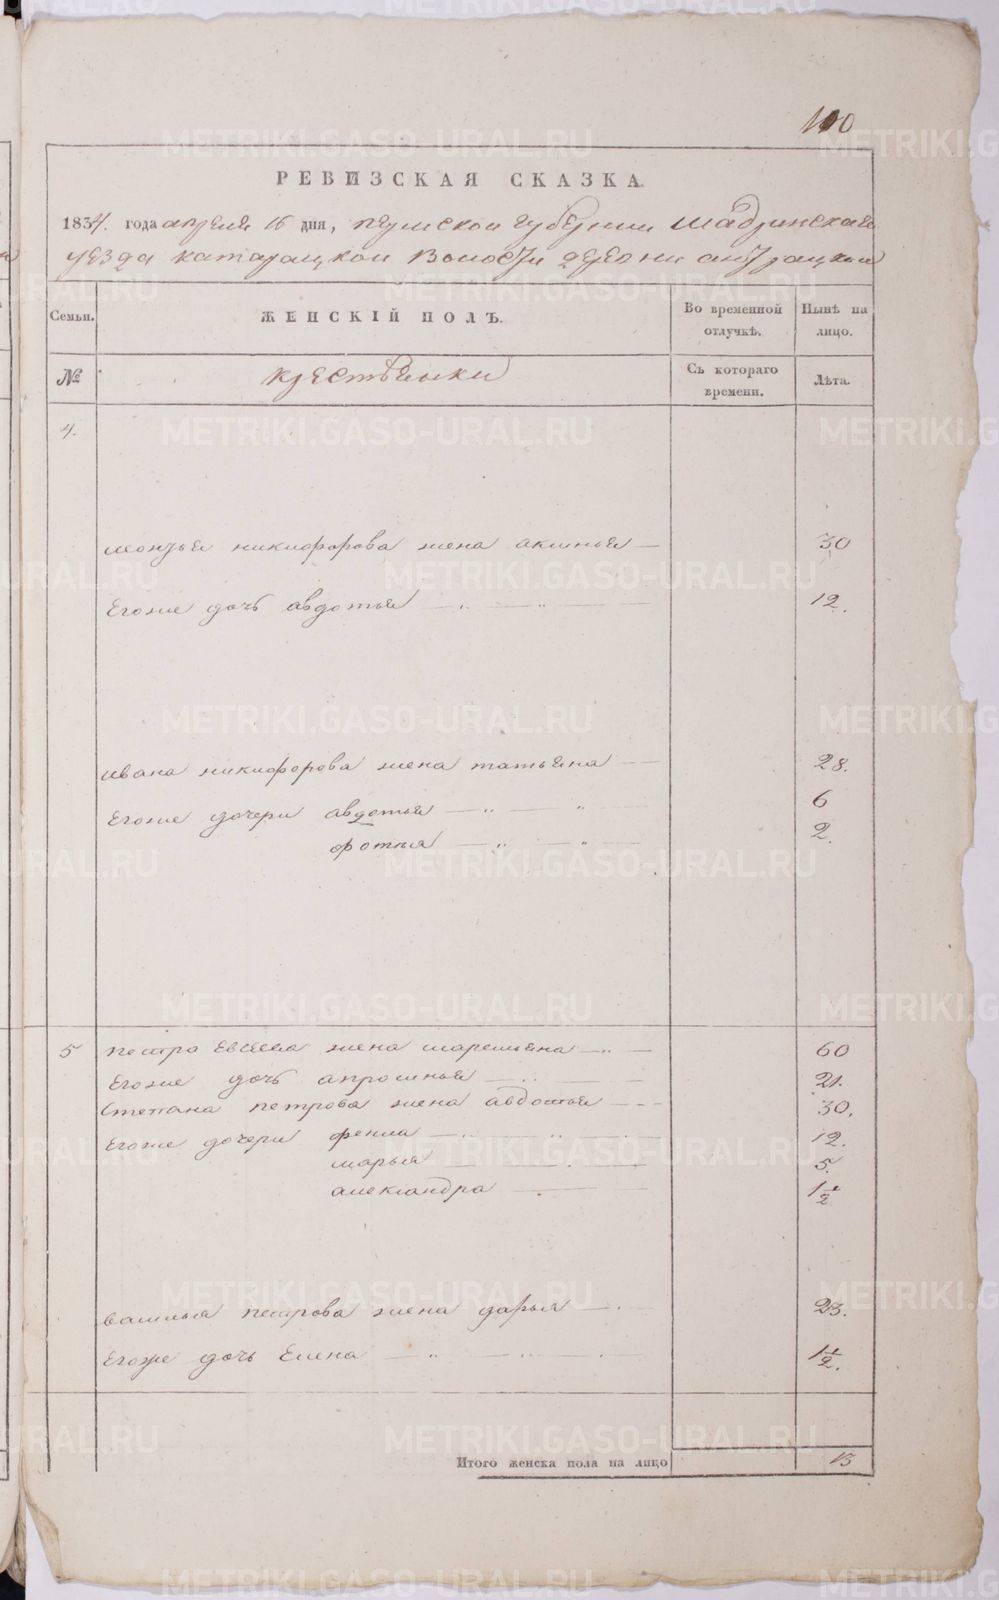 100
РЕВИЗСКАЯ СКАЗКА.
1834. года апреля 16 дня, пермской губернии шадринскаго
уезда катарацкой волости деревни
Семьи. ЖЕНСКІЙ ПОЛЪ. Во временной отлучкѣ. Нынѣ на лицо.
№ крестьянки Съ котораго времени. Лѣта.
4.
никифорова жена акилина 30
Егоже дочь авдотья 12.
ивана никифорова жена татьяна 28.
Егоже дочери авдотья 6
фотия 2.
5 петра Евсеева жена маремьяна 60
Егоже дочь апросинья 21.
степана петрова жена авдотья 30.
Егоже дочери фекла 12.
марья 5.
александра 1½
василья петрова жена дарья 23.
Егоже дочь Елена 1½.
Итого женска пола на лицо 13
METRIKI.GASO-URAL.RU